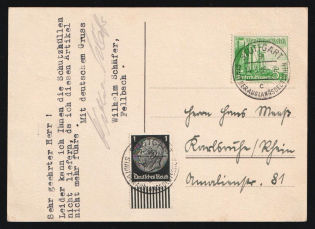 Sehr geehrter Herr !
Leider kann ich Ihnen die Schutzhüllen
nicht liefern, da ich diesen Artikel
nicht mehr führe .
Mit deutschem Gruss
Wilhelm Schäfer,
Fellbach .
STUTTGART
c
1
Deutsches Reich
Herrn Hans Meeß
Karlsruhe/Rhein
Amalienstr. 81